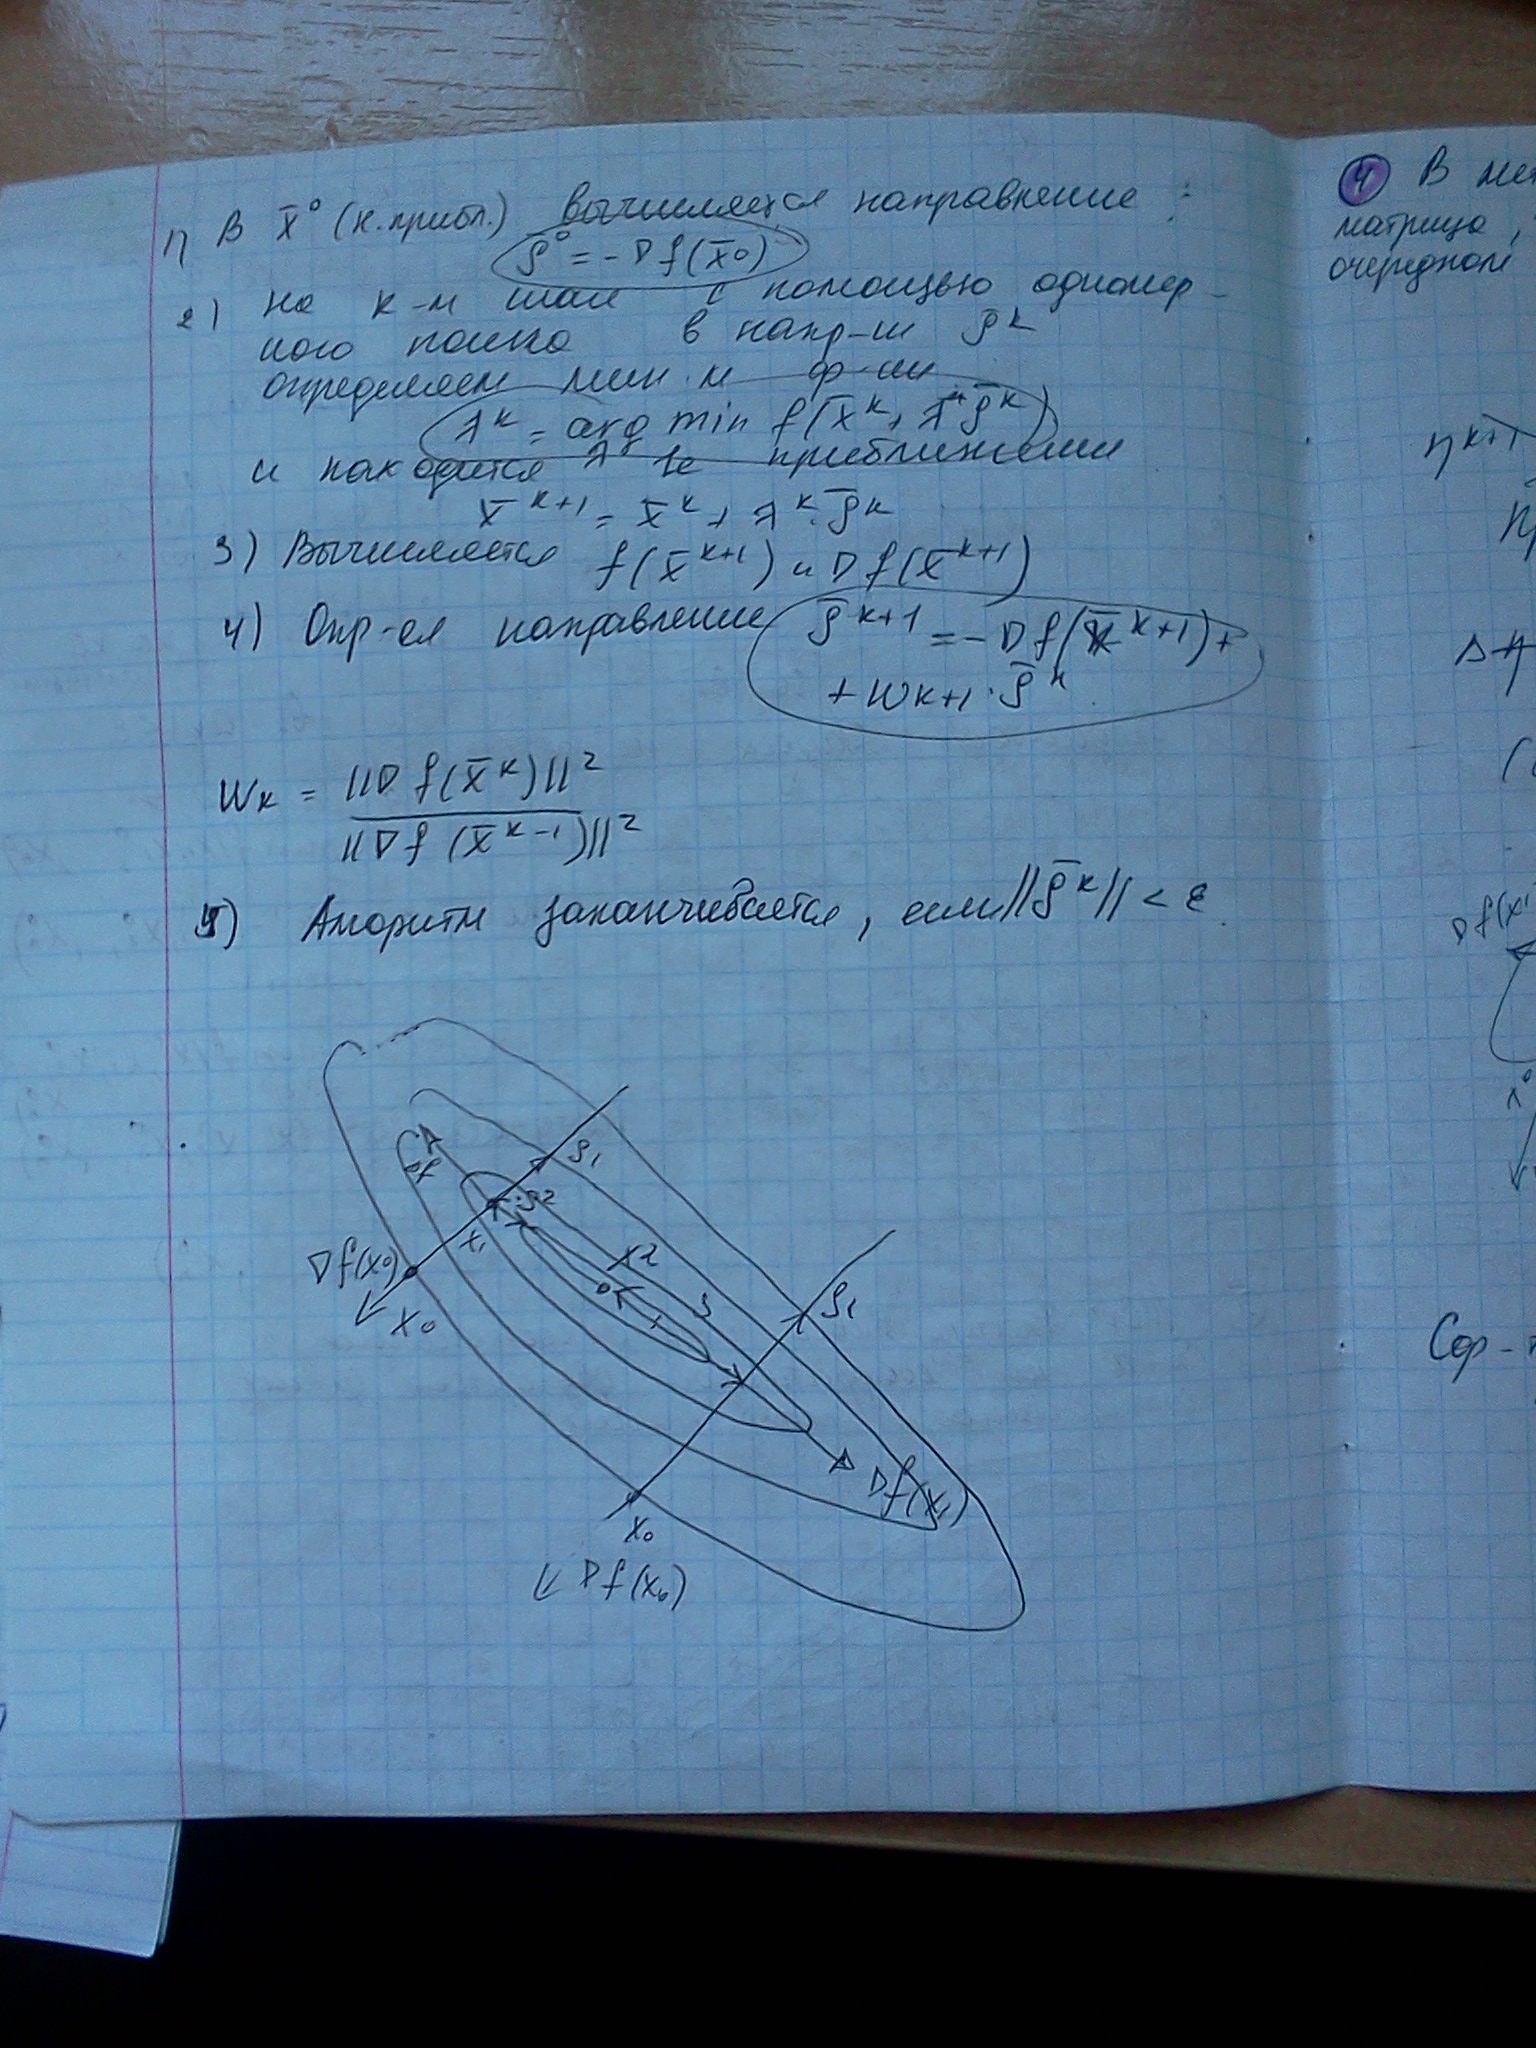 1) В x̄⁰ (н. прибл.) вычисляется направление :
ρ̄⁰ = -∇f(x̄⁰)
2) На к-м шаге с помощью одномер-
ного поиска в напр-ии ρ̄ᵏ
определяем мин.м ф-ии
λᵏ = arg min f(x̄ᵏ + λᵏρ̄ᵏ)
и находится приближении
x̄ᵏ⁺¹ = x̄ᵏ + λᵏ·ρ̄ᵏ
3) Вычисляется f(x̄ᵏ⁺¹) и ∇f(x̄ᵏ⁺¹)
4) Опр-ел направление ρ̄ᵏ⁺¹ = -∇f(x̄ᵏ⁺¹)+
+ Wк+1·ρ̄ᵏ
Wк = ||∇f(x̄ᵏ)||²
||∇f(x̄ᵏ⁻¹)||²
5) Алгоритм заканчивается, если ||ρ̄ᵏ|| < ε
ρ₁
ρ2
x₁
∇f(x₀)
x₀
x2
ρ₁
∇f(x₁)
x₀
∇f(x₀)
4 В
матрица,
очередном
ηᵏ⁺¹
∇f(x¹
x⁰